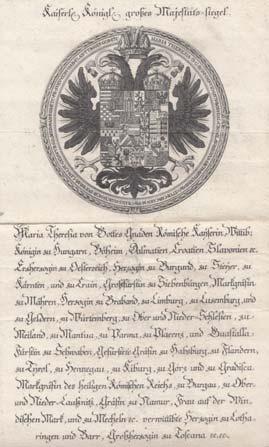 Kaiserl. Königl. großes Majestäts-siegel.
MARIA THERESIA
Maria Theresia von Gottes Gnaden Römische Kaiserin, Wittib;
Königin zu Hungarn, Böheim, Dalmatien, Croatien, Slavonien ꝛc.
Erzherzogin zu Oesterreich, Herzogin zu Burgund, zu Steyer, zu
Kärnten, und zu Crain, Großfürstin zu Siebenbürgen, Markgräfin
zu Mähren, Herzogin zu Braband, zu Limburg, zu Luxenburg, und
zu Geldern, zu Würtemberg, zu Ober und Nieder-Schlesien, zu
Meiland, zu Mantua, zu Parma, zu Placenz, und Guastalla
Fürstin zu Schwaben, Gefürstete Gräfin zu Habsburg, zu Flandern,
zu Tyrol, zu Hennegau, zu Kiburg, zu Görz und zu Gradisca,
Markgräfin des heiligen Römischen Reichs, zu Burgau, zu Ober-
und Nieder-Laußnitz, Gräfin zu Namur, Frau auf der Win-
dischen Mark, und zu Mecheln ꝛc. verwittibte Herzogin zu Lotha-
ringen und Barr, Großherzogin zu Toscana ꝛc. ꝛc.